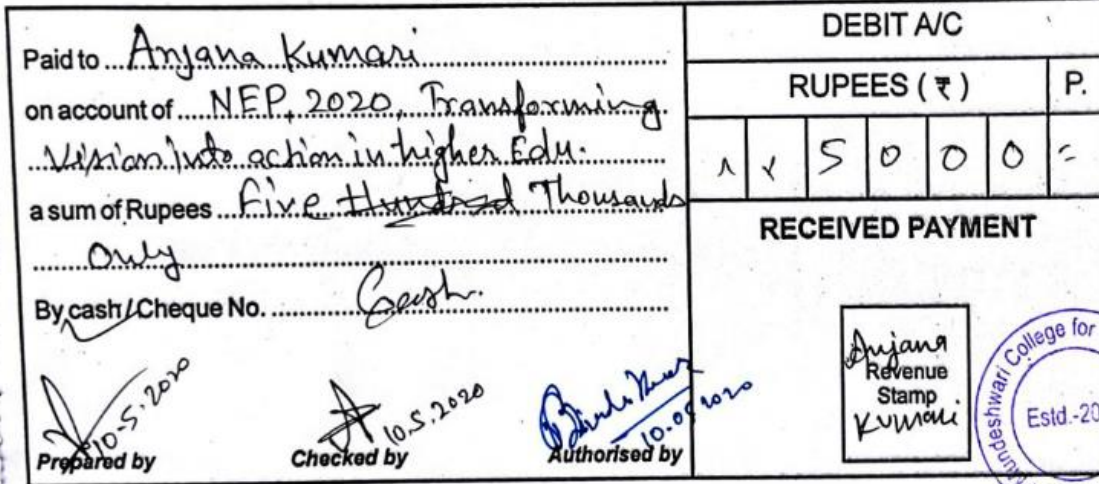 Paid to Anjana Kumari
on account of NEP, 2020, Transforming
Vision into action in higher Edu.
a sum of Rupees Five Hundred Thousands
Only
By cash / Cheque No. Cash.
10-5-2020
Prepared by
10.5.2020
Checked by
10-05-2020
Authorised by
DEBIT A/C
RUPEES (₹) P.
5 0 0 0 =
RECEIVED PAYMENT
Anjana
Revenue
Stamp
Kumari
College for
Estd.-20